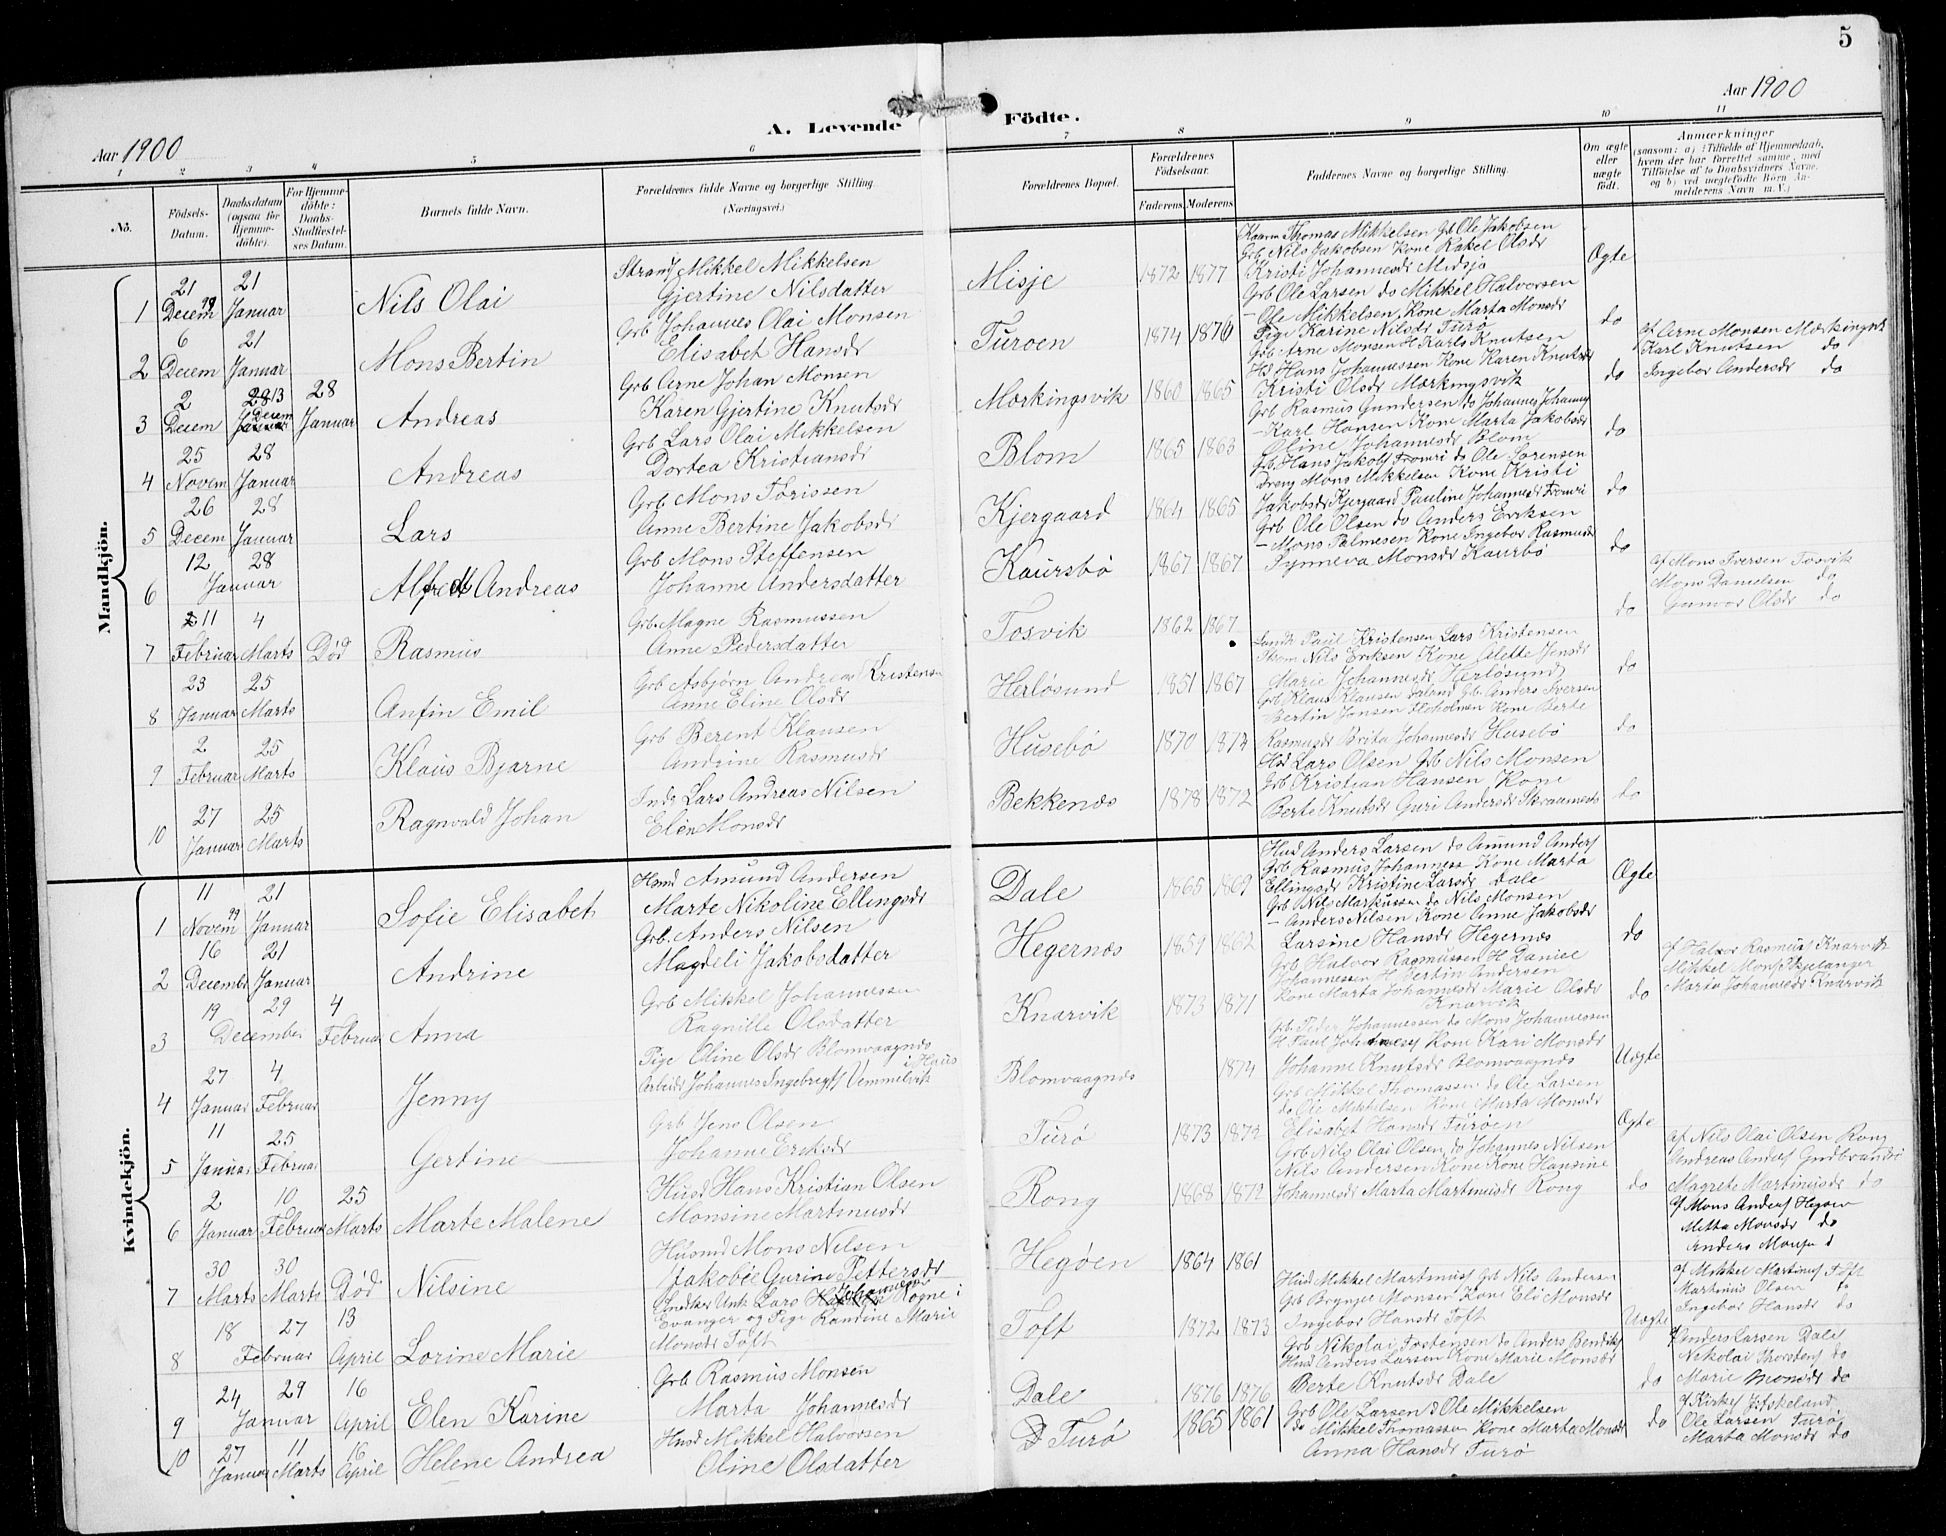 5
Aar 1900
Aar 1900
A. Levende Födte.
1 2 3 4 5 6 7 8 9 10 11
No.
Födsels-Datum.
Daabsdatum (ogsaa for Hjemme-döbte).
For Hjemme-döbte: Daabs-Stadfæstel-ses Datum.
Barnets fulde Navn.
Forældrenes fulde Navne og borgerlige Stilling. (Næringsvei.)
Forældrenes Bopæl.
Forældrenes Födselsaar.
Faderens. Moderens.
Faddernes Navne og borgerlige Stilling.
Om ægte eller uægte födt.
Anmærkninger
(saasom: a) i Tilfælde af Hjemmedaab, hvem der har forrettet samme, med Tilföielse af to Daabsvidners Navne, og b) ved uægtefödte Börn An-melderens Navn m. V.)
Mandkjön.
1 21 Decem 99 21 Januar Nils Olai
Strands Mikkel Mikkelsen
Gjertine Nilsdatter
Misje 1872 1877
Kaarm Thomas Mikkelsen Gb Ole Jakobsen
Grb Nils Jakobsen Kone Rakel Olsdr
Kristi Johannesdr Midsjø
Ægte
2 6 Decem 21 Januar Mons Bertin
Grb Johannes Olai Monsen
Elisabet Hansdr
Turoen 1874 1876
Grb Ole Larsen do Mikkel Halvorsen
- Ole Mikkelsen, Kone Marta Monsdr
Pige Karine Nilsdr Turø
do
3 2 Decem 13 Decem 28 Januar Andreas
Grb Arne Johan Monsen
Karen Gjertine Knutsdr
Mærkingsvik 1860 1865
Grb Arne Monsen H Karls Knutsen
Hd Hans Johannessen Kone Karen Knutsdr
Kristi Olsdr Mærkingsvik
do
af Arne Monsen Mærkingsvik
Karl Knutsen do
Ingebor Andersdr do
4 25 Novem 28 Januar Andreas
Grb Lars Olai Mikkelsen
Dortea Kristiansdr
Blom 1865 1863
Grb Rasmus Gundersen do Johannes
- Karl Hansen Kone Marta Jakobsdr
Oline Johannesdr Blom
do
5 26 Decem 28 Januar Lars
Grb Mons Tørissen
Anne Bertine Jakobsdr
Kjergaard 1864 1865
Gb Hans Jakobs do Ole Sørensen
Dreng Mons Mikkelsen Kone Kristi
Jakobsdr Kjergaard Pauline Johannesdr
do
6 12 Januar 28 Alfred Andreas
Grb Mons Steffensen
Johanne Andersdatter
Kaursbø 1867 1867
Grb Ole Olsen do Anders Eriksen
- Mons Palmesen Kone Ingebor Rasmusdr
Synneva Monsdr Kaursbø
do
7 11 Februar 4 Marts Död Rasmus
Grb. Magne Rasmussen
Anne Pedersdatter
Tosvik 1862 1867
do
af Mons Iversen Tosvik
Mons Danielsen do
Gunvor Olsdr do
8 23 Januar 25 Marts Anfin Emil
Grb Asbjørn Andreas Kristensen
Anne Eline Olsdr
Herløsund 1851 1867
Paul Kristensen Lars Kristensen
Nils Eriksen Kone Alette Jensdr
Marie Johannesdr Herløsund
do
9 2 Februar 25 Marts Klaus Bjarne
Grb Berent Klausen
Andrine Rasmusdr
Husebø 1870 1873
Grb Klaus Klausen Gb. Anders Iversen
- Bertin Jansen Floholmen Kone Berte
Rasmusdr Brita Johannesdr Husebø
do
10 27 Januar 25 Marts Ragnvald Johan
Indr Lars Andreas Nilsen
Eline Monsdr
Bekkenæs 1878 1872
Hsd Lars Olsen Grb Nils Monsen
Grb Kristian Hansen Kone
Berte Knutsdr Guri Andersdr
do
Kvindekjön.
1 11 Novem 99 21 Januar Sofie Elisabet
Hsmd Amund Andersen
Marte Nikoline Ellingsdr
Dale 1865 1869
Husd Anders Larsen do Amund Anders
Grb Rasmus Johanness Kone Marta
Ellingsdr Kristine Larsdr Dale
Ægte
2 16 Decembr 21 Januar Andrine
Grb. Anders Nilsen
Magdeli Jakobsdatter
Hegernæs 1859 1862
Grb Nils Markussen do Nils Monsen
- Anders Nilsen Kone Anne Jakobsdr
Larsine Hansdr Hegernæs
do
3 19 December 29 4 Februar Anna
Grb Mikkel Johannessen
Ragnille Olsdatter
Knarvik 1873 1871
Grb Halvor Rasmussen H Daniel
Johannessen H Bertin Andersen
Kone Marta Johannesdr Marie Olsdr
Knarvik
do
af Halvor Rasmus Knarvik
Mikkel Mons
Marta Johannesdr Knarvik
4 27 Januar 4 Februar Jenny
Pige Oline Olsdr Blomvaagnæs
Arbeidr Johannes Ingebregts Vemmelvik i Haus
Blomvaagnæs 1874
Grb Peder Johannessen do Mons Johannessen
H Paul Johanness Kone Kari Monsdr
Johanne Knutsdr Blomvaagnæs
Uegte
5 11 Januar 25 Februar Gertine
Grb Jens Olsen
Johanne Eriksdr
Turø 1873 1872
Grb Mikkel Thomassen do Ole Larsen
do Ole Mikkelsen Kone Marta Monsdr
Elisabet Hansdr Turøen
Ægte
6 2 Januar 10 Februar 25 Marts Marte Malene
Husd Hans Kristian Olsen
Monsine Martinusdr
Rong 1868 1872
Grb Nils Olai Olsen, do Johannes Nilsen
Nils Andersen Kone Kone Hansine
Johannesdr Marta Martinusdr Rong
do
af Nils Olai Olsen Rong
Andreas Anders
Magrete Martinusdr do
7 30 Marts 30 Marts Död Nilsine
Husmd Mons Nilsen
Jakobie Gurine Pettersdr
Hegøen 1864 1861
af Mons Anders Hegøen
Metta Monsdr do
Anders Mons d
8 18 Februar 27 13 April Lorine Marie
Snedker Unk Lars Johannes i
Evanger og Pige Randine Marie
Monsdr Toft
Toft 1872 1873
Husd Mikkel Martinus Grb Nils Andersen
Grb Brynjer Monsen Kone Eli Monsdr
Ingebor Hansdr Toft
Uægte
af Mikkel Martinus Toft
Martinus Olsen do
Ingebor Hansdr do
9 24 Januar 29 16 April Elen Karine
Grb Rasmus Monsen
Marta Johannesdr
Dale 1876 1876
Grb Nikolai Tostensen do Anders Bendiks
Husd Anders Larsen Kone Marie Monsdr
Berte Knutsdr Dale
do
af Anders Larsen Dale
Nikolai Thorstens do
Marie Monsdr do
10 27 Januar 11 Marts 16 April Helene Andrea
Husd Mikkel Halvorsen
Oline Olsdatter
Turø 1865 1861
Grb Ole Larsen d Ole Mikkelsen
do Mikkel Thomassen Kone Marta Monsdr
Anna Hansdr Turø
do
Ole Larsen Turø
Marta Monsdr do